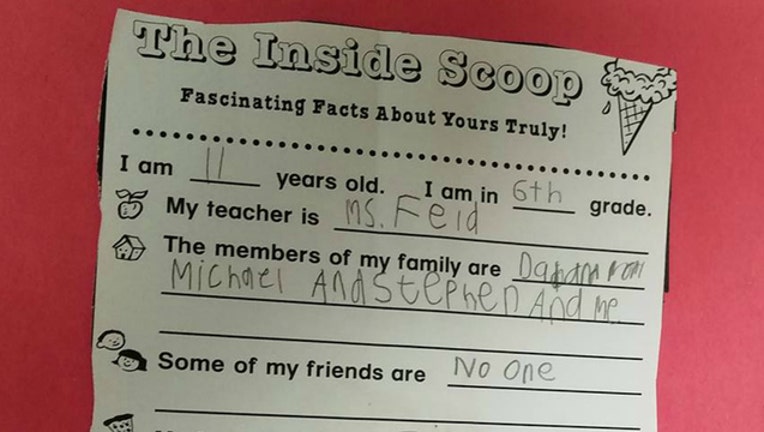 The Inside Scoop
Fascinating Facts About Yours Truly!
I am 11 years old. I am in 6th grade.
My teacher is Ms. Feid
The members of my family are
Michael And Stephen And me
Some of my friends are No one